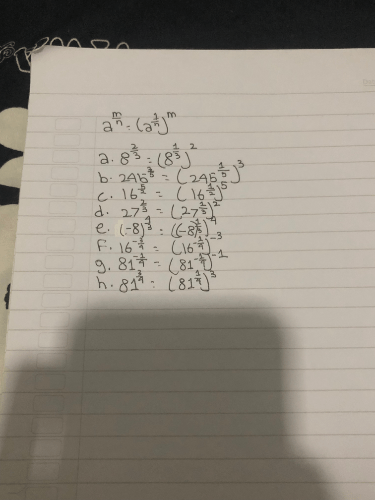 a^(m/n) = (a^(1/n))^m
a. 8^(2/3) = (8^(1/3))^2
b. 245^(3/5) = (245^(1/5))^3
c. 16^(5/2) = (16^(1/2))^5
d. 27^(2/3) = (27^(1/3))^2
e. (-8)^(4/3) = ((-8)^(1/3))^4
f. 16^(-3/4) = (16^(1/4))^-3
g. 81^(-1/4) = (81^(1/4))^-1
h. 81^(3/4) = (81^(1/4))^3